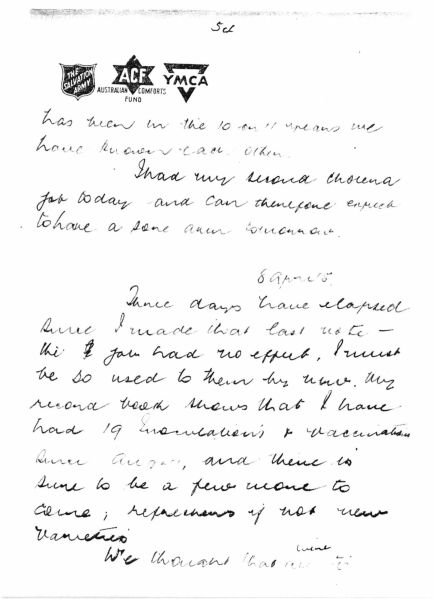 5d
THE SALVATION ARMY
ACF
AUSTRALIAN COMFORTS FUND
YMCA
has been in the 10 or 11 years we
have known each other.
I had my second cholera
jab today and can therefore expect
to have a sore arm tomorrow.
8 April 5.
Three days have elapsed
since I made that last note –
the jab had no effect, I must
be so used to them by now. My
record book shows that I have
had 19 Inoculations & Vaccinations
since and there is
sure to be a few more to
come; refreshers if not new
varieties
We thought that